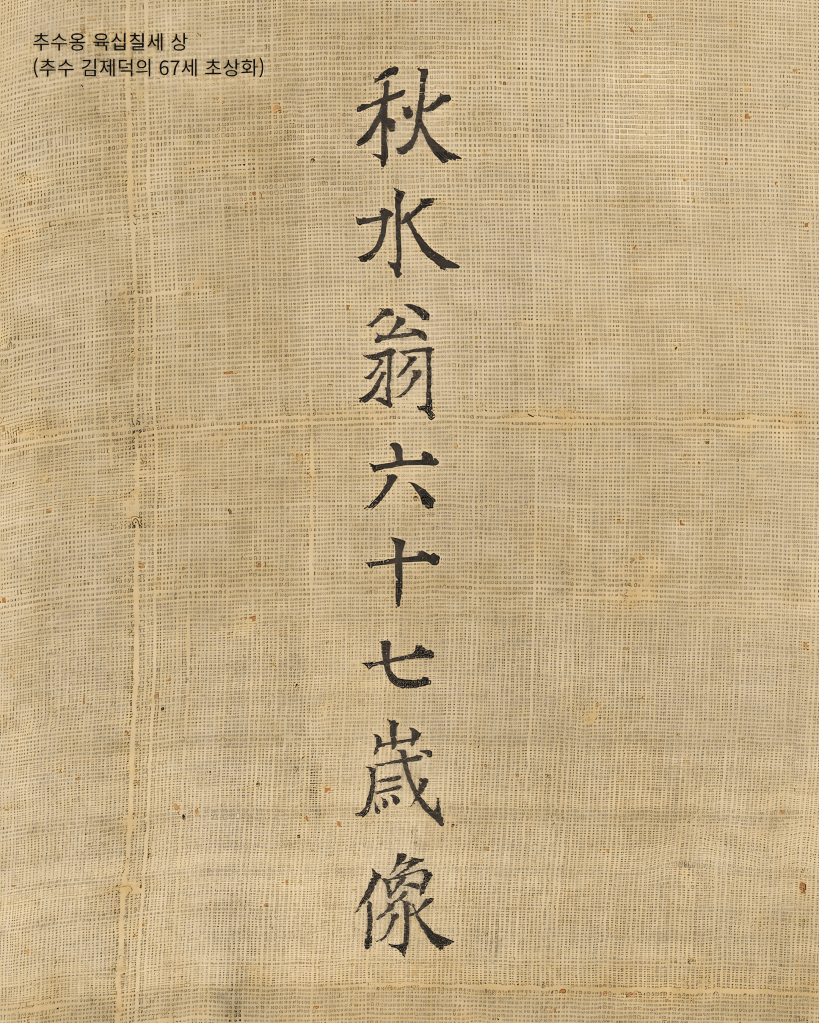 추수옹 육십칠세 상
(추수 김제덕의 67세 초상화)
秋水翁六十七歲像